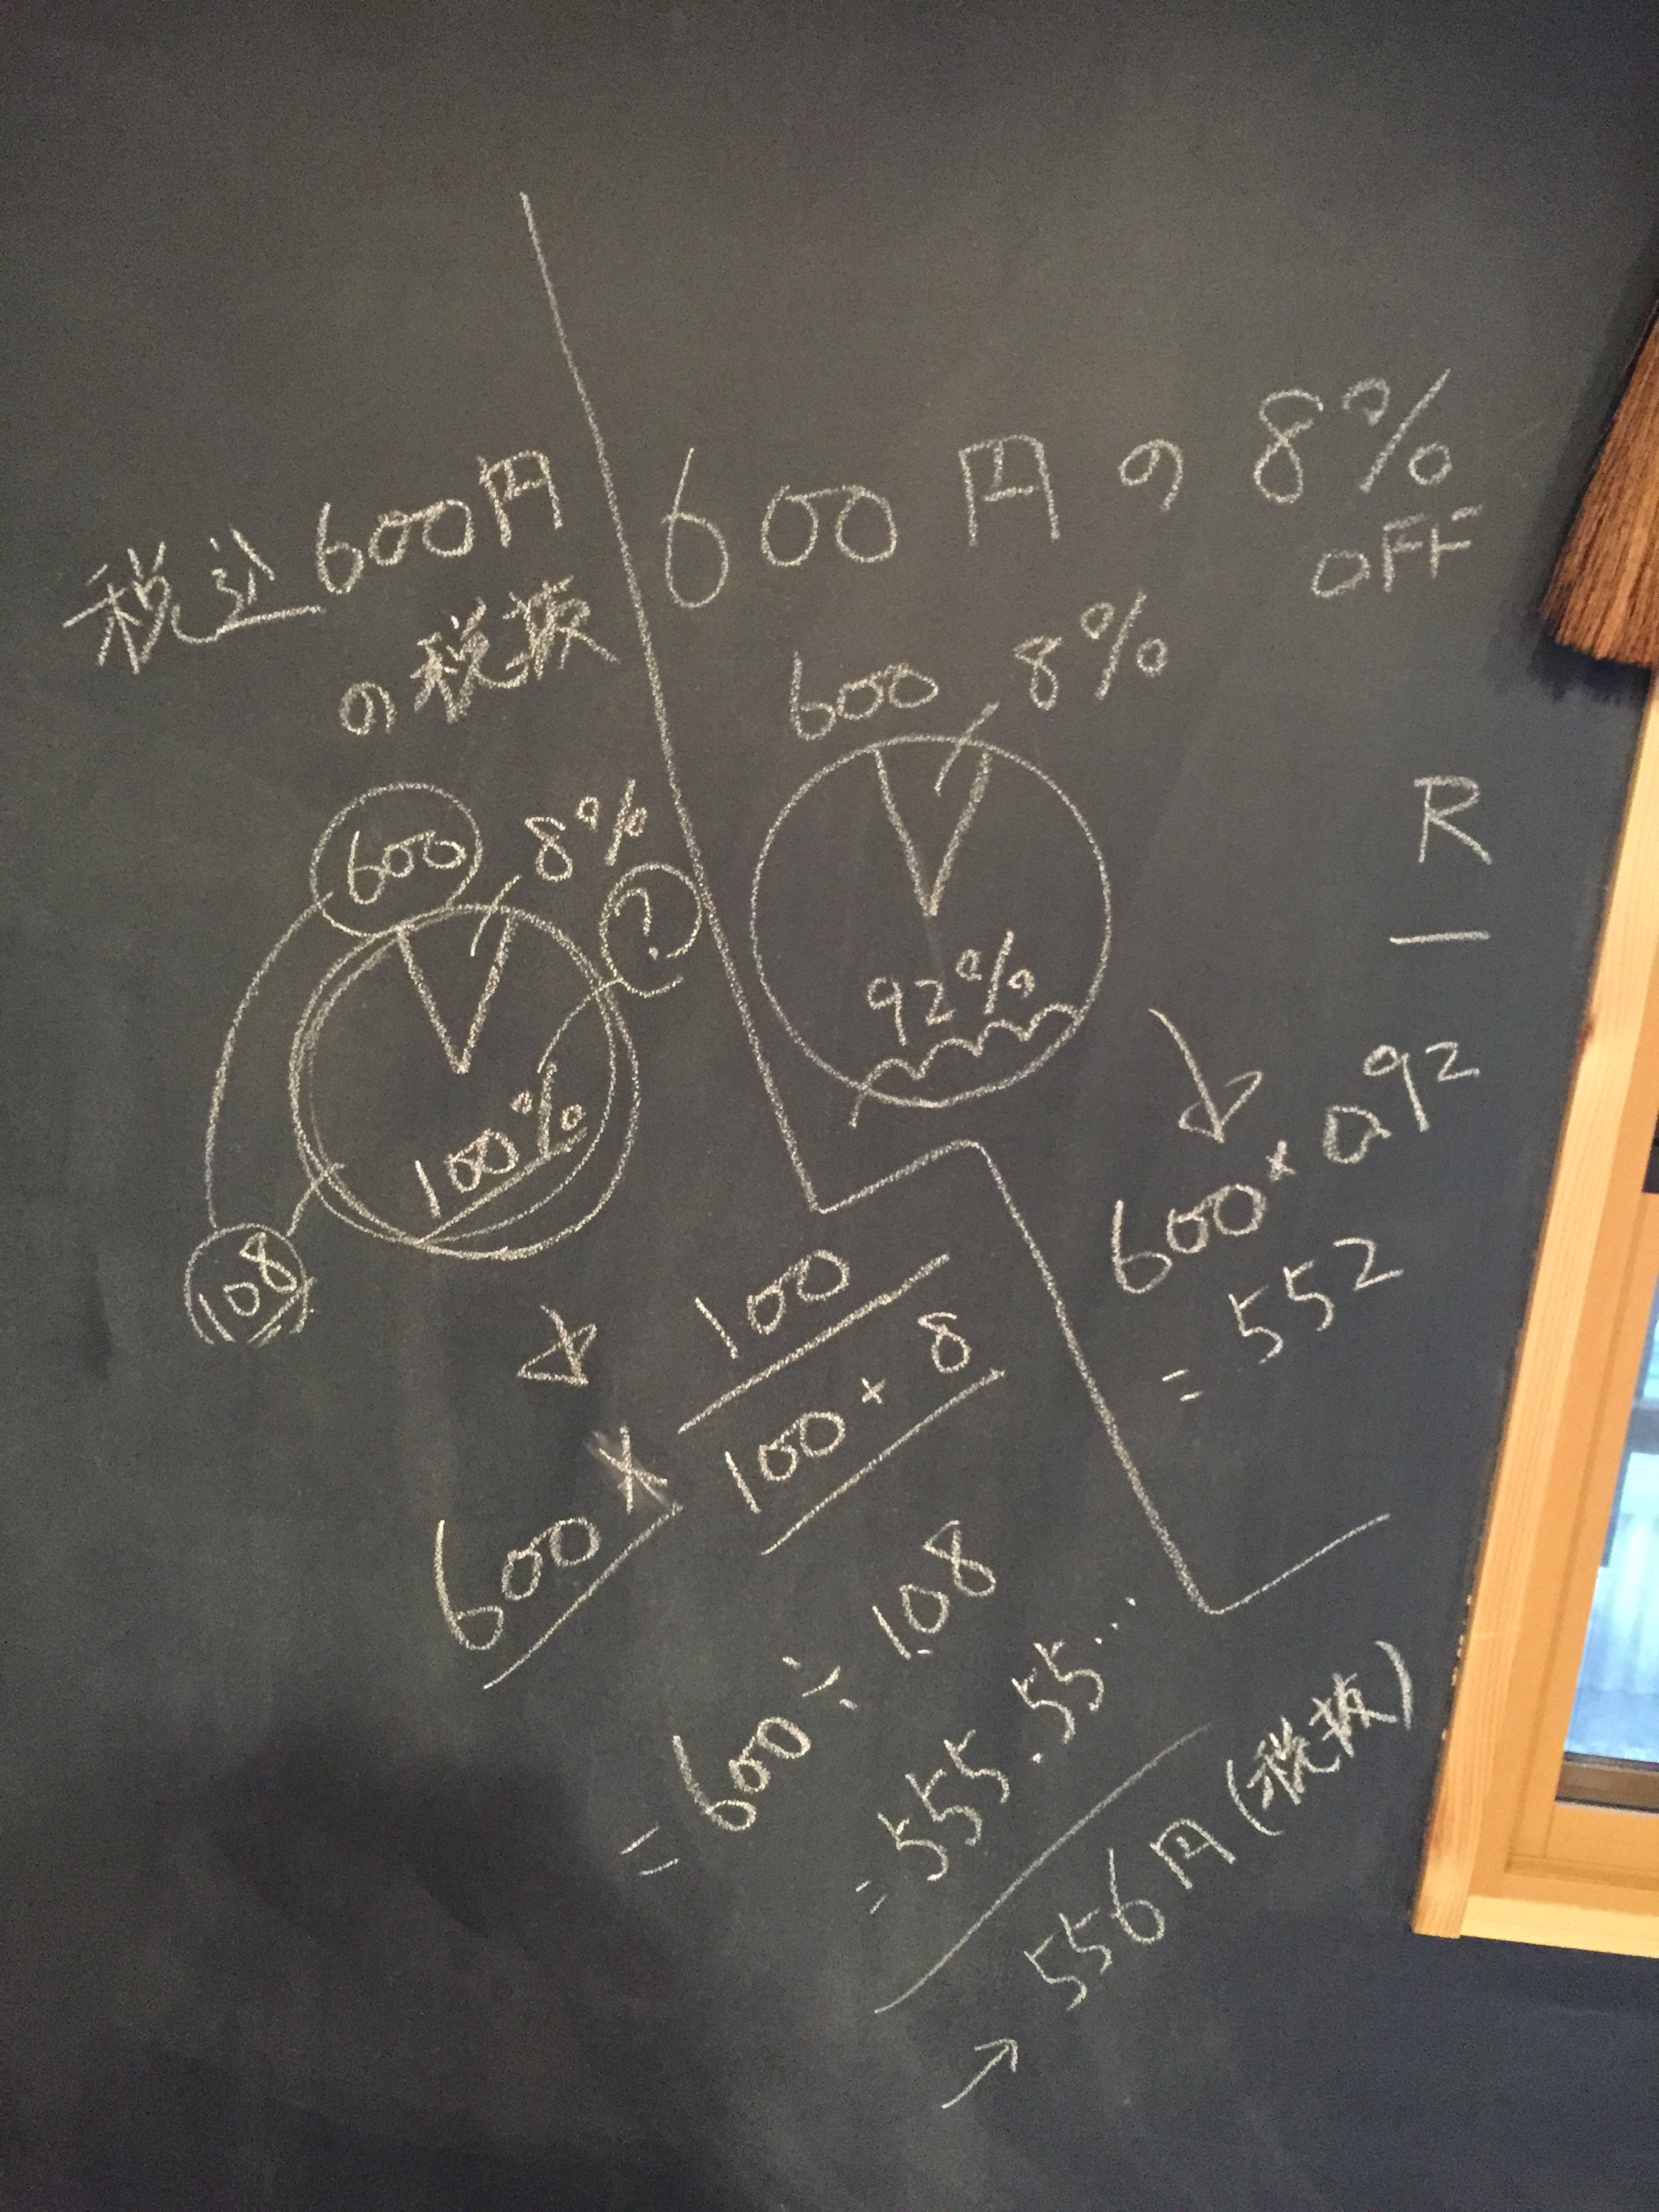 税込600円
の税抜
600
8%
?
100%
108
600 × 100/100+8
= 600 ÷ 1.08
= 555.55...
→ 556円(税抜)
600円の8%
OFF
600
8%
92%
R
600×0.92
= 552